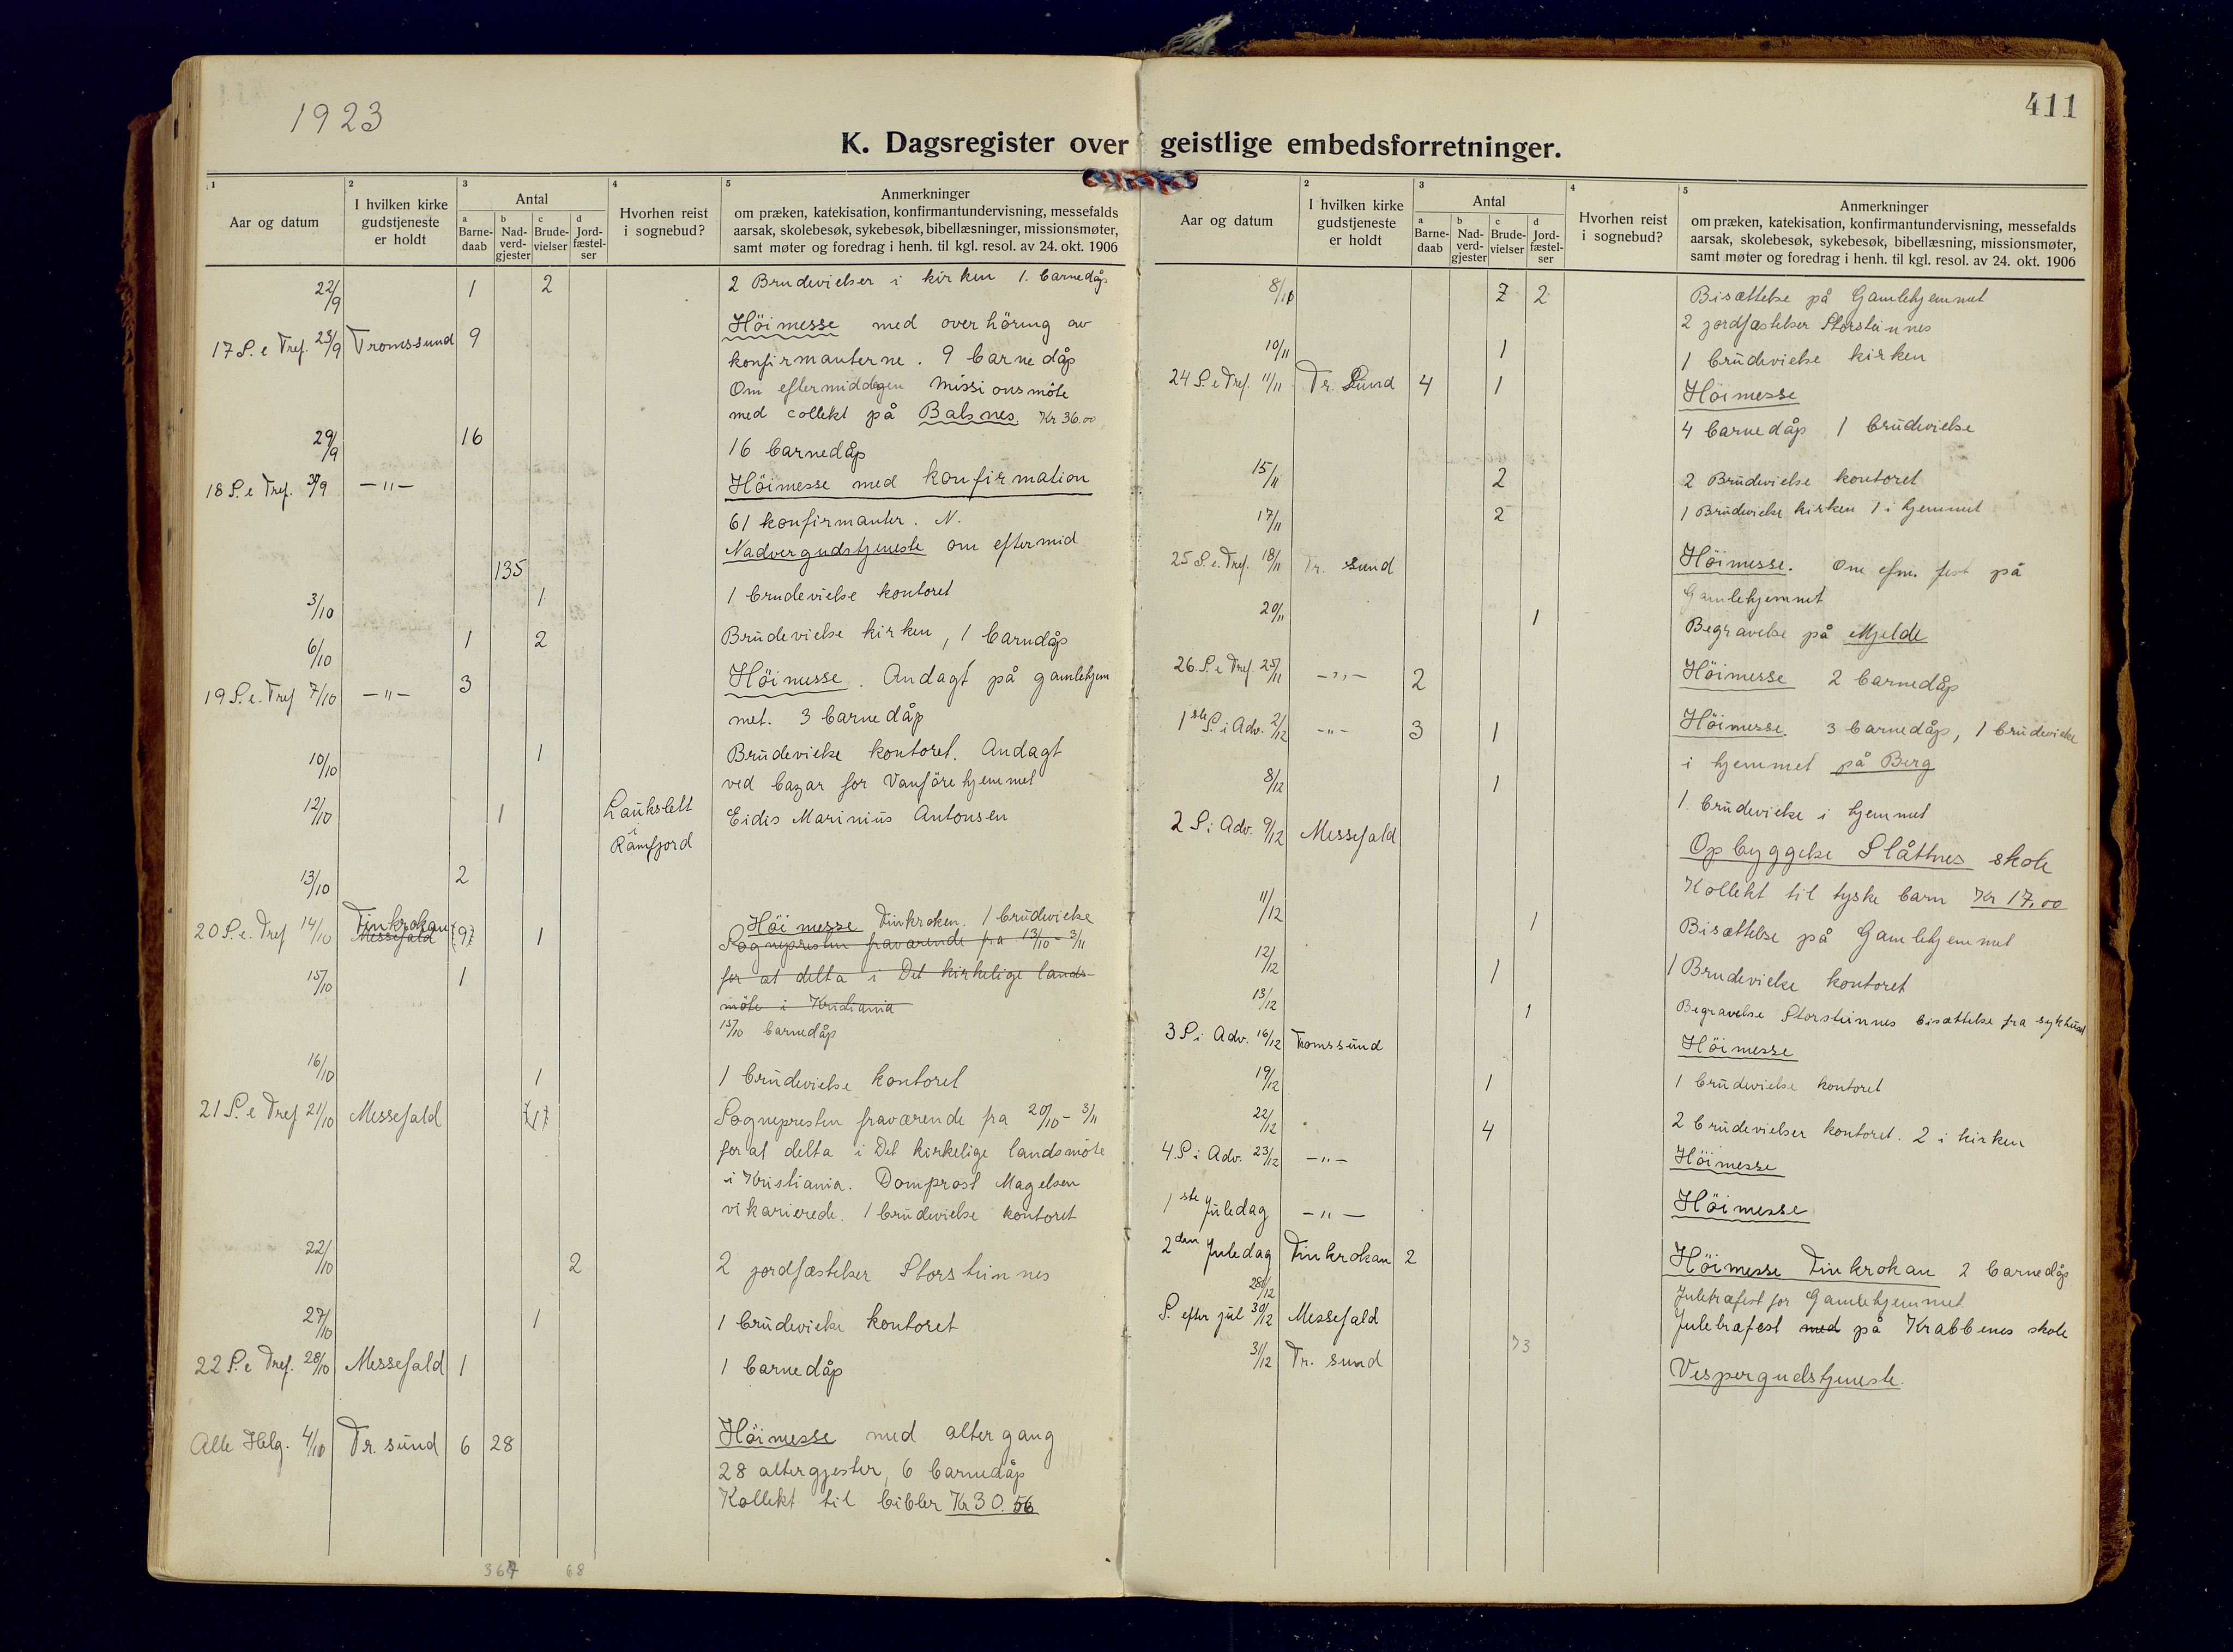 1923
411
K. Dagsregister over geistlige embedsforretninger.
1 2 3 4 5
Aar og datum
I hvilken kirke gudstjeneste er holdt
Antal
a Barne-daab b Nad-verd-gjester c Brude-vielser d Jord-fæstel-ser
Hvorhen reist i sognebud?
Anmerkninger
om præken, katekisation, konfirmantundervisning, messefalds
aarsak, skolebesøk, sykebesøk, bibellæsninger, missionsmøter,
samt møter og foredrag i henh. til kgl. resol. av 24. okt. 1906
22/9 1 2 2 Brudevielser i kirken 1. barnedåp
17 S. e Tref. 23/9 Tromssund 9 Höimesse med overhöring av
konfirmanterne. 9 barnedåp
Om eftermiddagen missionsmöte
med collekt på Balsnes. Kr 36.00
29/9 16 16 barnedåp
18 S. e Tref. 30/9 -"- Höimesse med konfirmation
61 konfirmanter. N.
Nadvergudstjeneste om eftermid
135
3/10 1 1 brudevielse kontoret
6/10 1 2 Brudevielse kirken, 1 barndåp
19 S. e. Tref 7/10 -"- 3 Höimesse. Andagt på gamlehjem
met. 3 barnedåp
10/10 1 Brudevielse kontoret. Andagt
ved bazar for Vanförehjemmet
12/10 1 Laukslett i Ramfjord Eidis Marinius Antonsen
13/10 2
20 S. e. Tref 14/10 Tinkroken Messefald 9 1 Höimesse Tinkroken. 1 brudevielse
Sognepresten fraværende fra 13/10 - 3/11
15/10 1 for at delta i Det kirkelige lands-
möte i Kristiania
15/10 barnedåp
16/10 1 1 brudevielse kontoret
21 S. e Tref 21/10 Messefald 1 Sognepresten fraværende fra 20/10 - 3/11
for at delta i Det kirkelige landsmöte
i Kristiania. Domprost Magelsen
vikarierede. 1 brudevielse kontoret
22/10 2 2 jordfæstelser Storsteinnes
27/10 1 1 brudevielse kontoret
22 S. e Tref. 28/10 Messefald 1 1 barnedåp
Alle Helg. 4/10 Tr. sund 6 28 Höimesse med altergang
28 altergjester, 6 barnedåp
Kollekt til bibler Kr 30.56
367 68
Aar og datum
2 3 4 5
I hvilken kirke gudstjeneste er holdt
Antal
a Barne-daab b Nad-verd-gjester c Brude-vielser d Jord-fæstel-ser
Hvorhen reist i sognebud?
Anmerkninger
om præken, katekisation, konfirmantundervisning, messefalds
aarsak, skolebesøk, sykebesøk, bibellæsning, missionsmøter,
samt møter og foredrag i henh. til kgl. resol. av 24. okt. 1906
8/11 2 2 Bisættelse på Gamlehjemmet
2 jordfæstelser Storsteinnes
10/11 1 1 brudevielse kirken
24 S. e Tref. 11/11 Tr. Sund 4 1 Höimesse
4 barnedåp 1 brudevielse
15/11 2 2 Brudevielse kontoret
17/11 2 1 Brudevielse kirken 1 i hjemmet
25 S. e. Tref. 18/11 Tr. sund Höimesse. Om efm. fest på
Gamlehjemmet
20/11 1 Begravelse på Mjelde
26. S. e Tref 25/11 -"- 2 Höimesse 2 barnedåp
1ste S. i Adv. 2/12 -"- 3 1 Höimesse. 3 barnedåp, 1 brudevielse
i hjemmet på Berg
8/12 1 1 brudevielse i hjemmet
2 S i Adv. 9/12 Messefald Opbyggelse Slåttnes skole
Kollekt til tyske barn Kr 17,00
11/12 1 Bisættelse på Gamlehjemmet
12/12 1 1 Brudevielse kontoret
13/12 1 Begravelse Storsteinnes bisættelse fra sykhuset
3 S i Adv. 16/12 Tromssund Höimesse
19/12 1 1 brudevielse kontoret
22/12 4 2 brudevielser kontoret. 2 i kirken
4. S i Adv. 23/12 -"- Höimesse
1ste Juledag -"- Höimesse
2den Juledag Tinkroken 2 Höimesse Tinkroken 2 barnedåp
28/12 Juletræfest for Gamlehjemmet
S. efter jul 30/12 Messefald Juletræfest med på Krabbenes skole
73
31/12 Tr. sund Vespergudstjeneste.